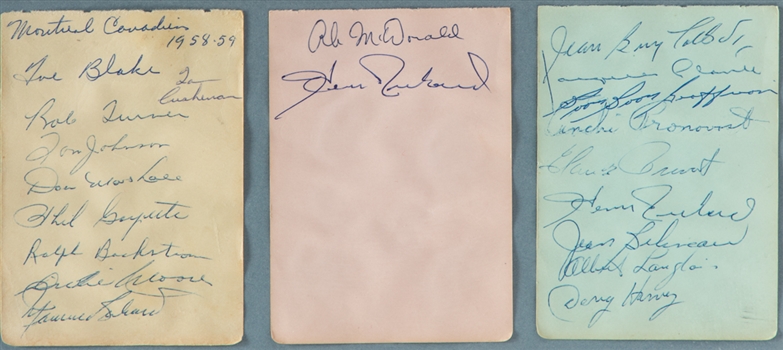 Montreal Canadiens
1958-59
Toe Blake
Ian
Cushenan
Bob Turner
Tom Johnson
Don Marshall
Phil Goyette
Ralph Backstrom
Dickie Moore
Maurice Richard
Ab McDonald
Henri Richard
Jean Guy Talbot
Jacques Plante
Boom Boom Geoffrion
André Pronovost
Claude Provost
Henri Richard
Jean Beliveau
Albert Langlois
Doug Harvey